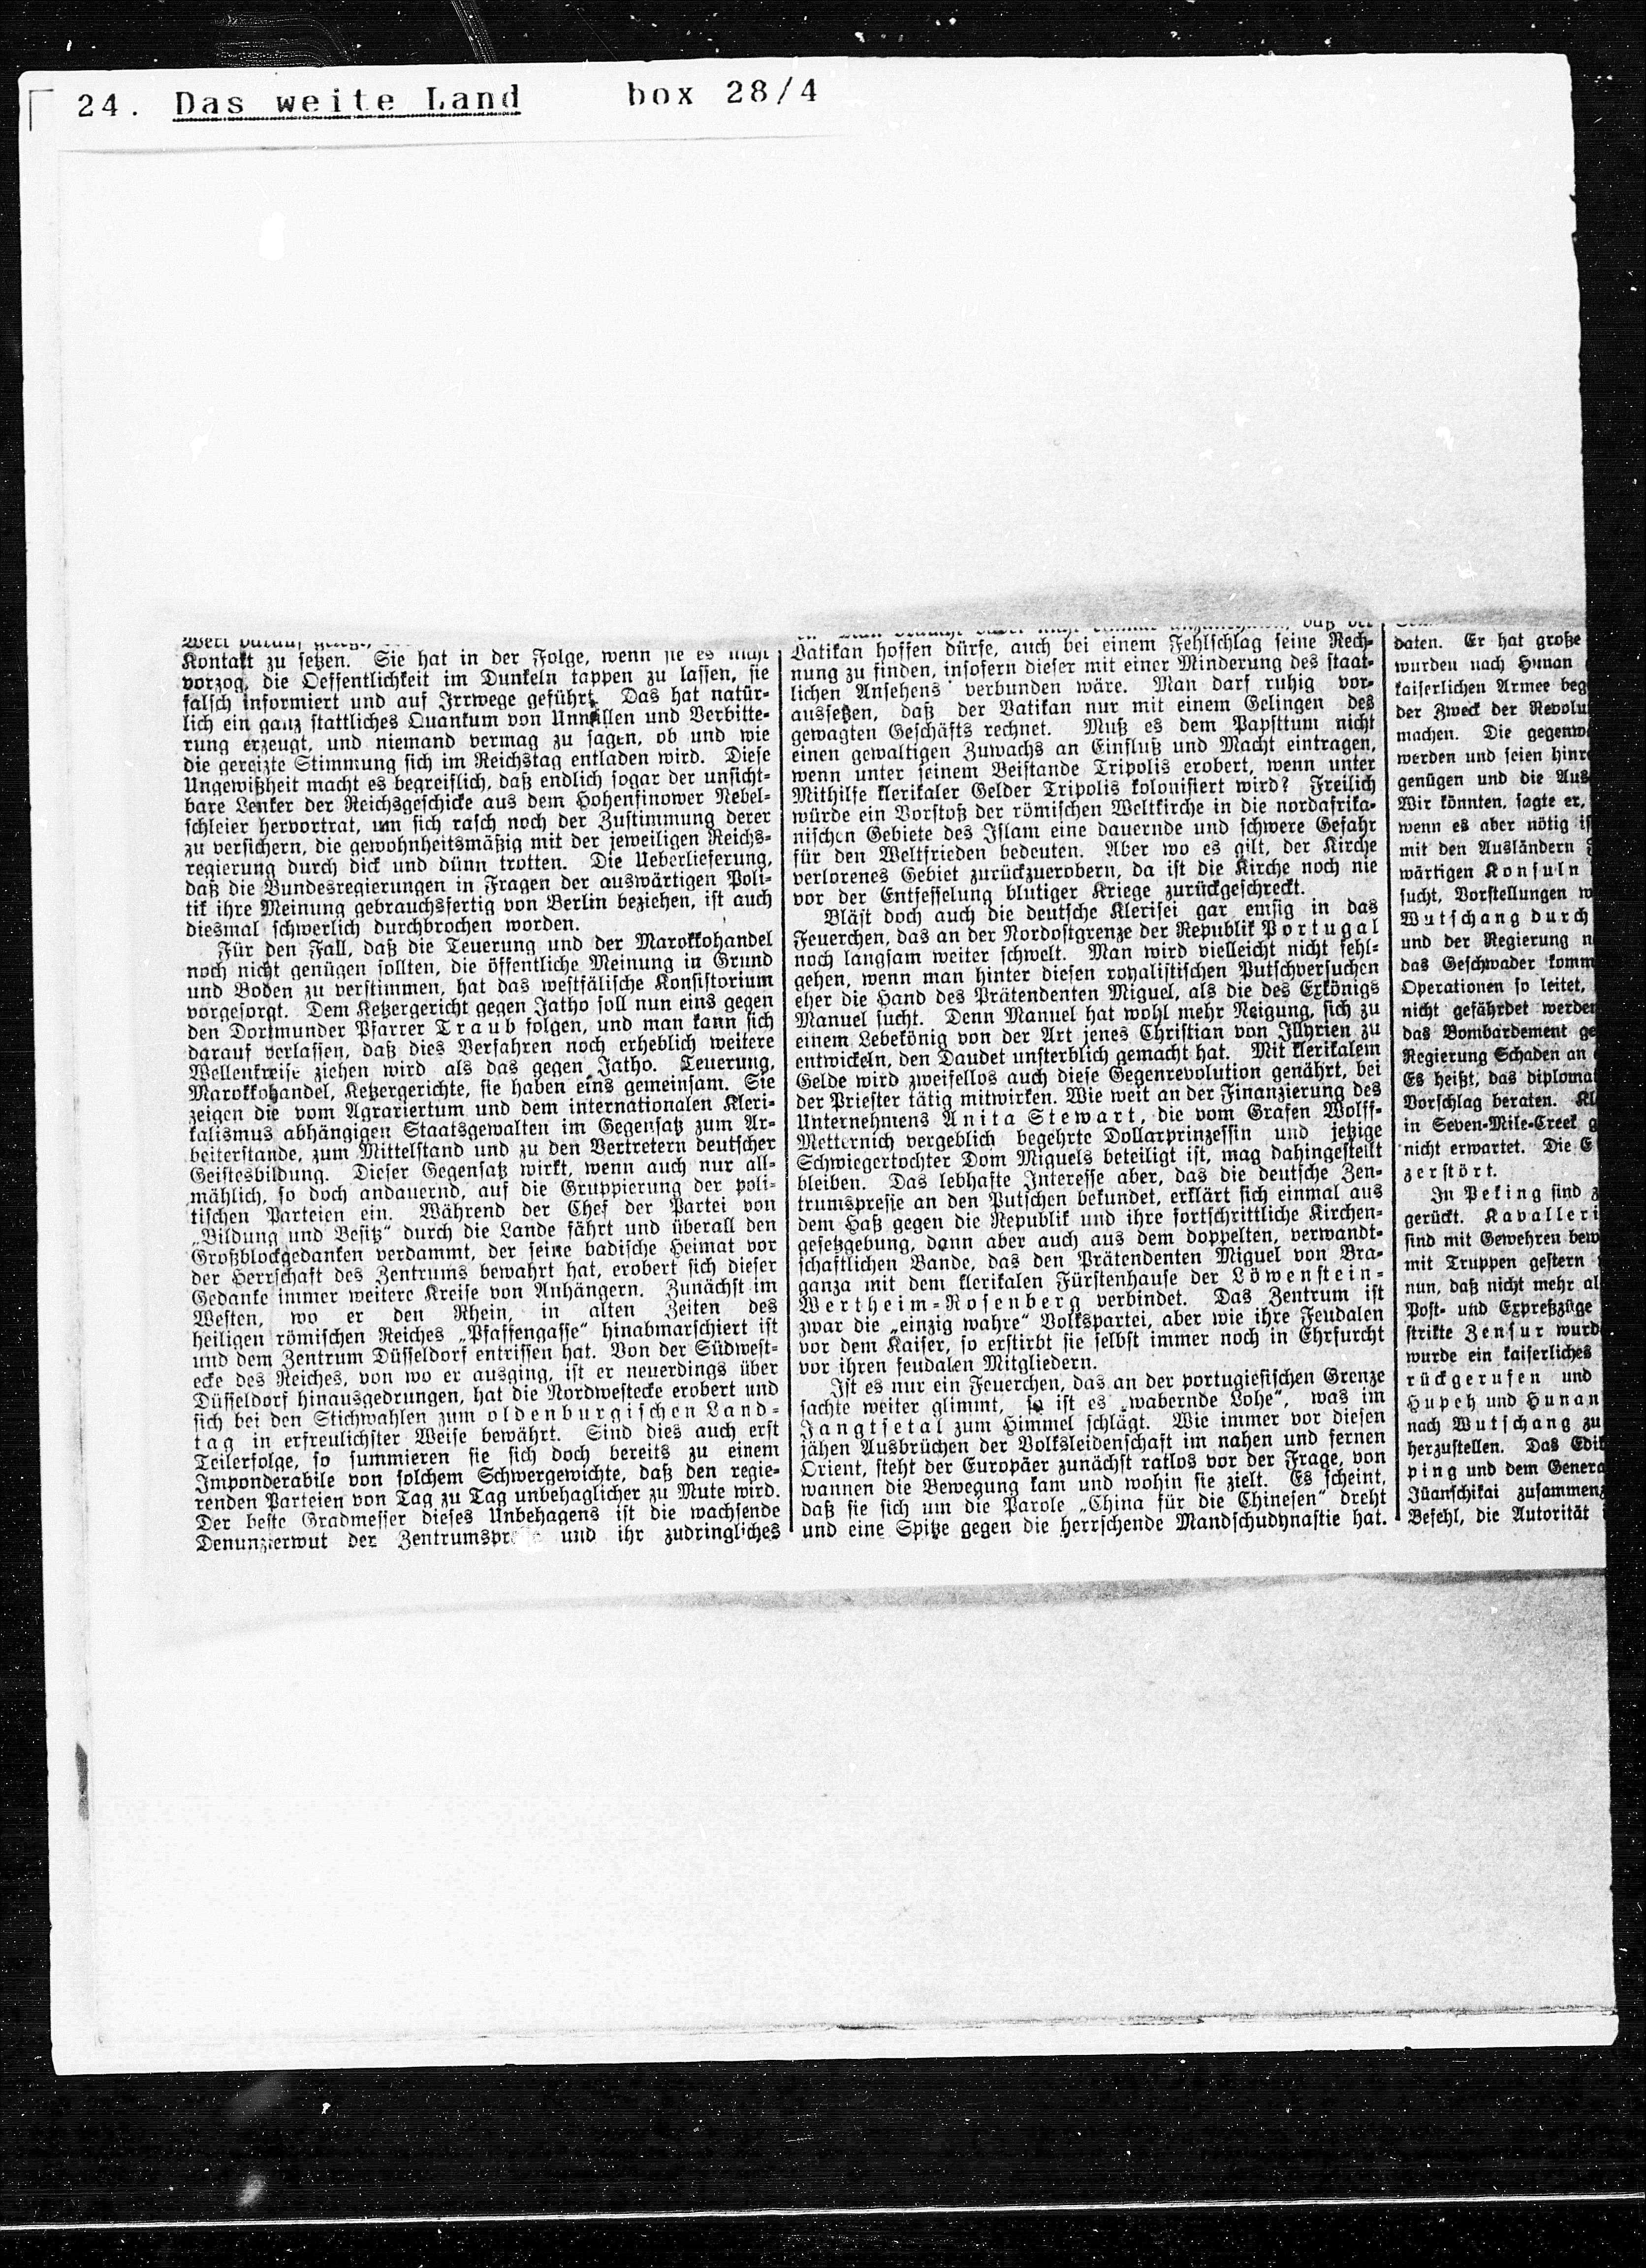 24. Das weite Land box 28/4
Kontakt zu setzen. Sie hat in der Folge, wenn sie es nicht
vorzog, die Oeffentlichkeit im Dunkeln tappen zu lassen, sie
falsch informiert und auf Irrwege geführt. Das hat natür-
lich ein ganz stattliches Quantum von Unwillen und Verbitte-
rung erzeugt, und niemand vermag zu sagen, ob und wie
die gereizte Stimmung sich im Reichstag entladen wird. Diese
Ungewißheit macht es begreiflich, daß endlich sogar der unsicht-
bare Lenker der Reichsgeschicke aus dem Hohenfinower Nebel-
schleier hervortrat, um sich rasch noch der Zustimmung derer
zu versichern, die gewohnheitsmäßig mit der jeweiligen Reichs-
regierung durch dick und dünn trotten. Die Ueberlieferung,
daß die Bundesregierungen in Fragen der auswärtigen Poli-
tik ihre Meinung gebrauchsfertig von Berlin beziehen, ist auch
diesmal schwerlich durchbrochen worden.
Für den Fall, daß die Teuerung und der Marokkohandel
noch nicht genügen sollten, die öffentliche Meinung in Grund
und Boden zu verstimmen, hat das westfälische Konsistorium
vorgesorgt. Dem Ketzergericht gegen Jatho soll nun eins gegen
den Dortmunder Pfarrer Traub folgen, und man kann sich
darauf verlassen, daß dies Verfahren noch erheblich weitere
Wellenkreise ziehen wird als das gegen Jatho. Teuerung,
Marokkohandel, Ketzergerichte, sie haben eins gemeinsam. Sie
zeigen die vom Agrariertum und dem internationalen Kleri-
kalismus abhängigen Staatsgewalten im Gegensatz zum Ar-
beiterstande, zum Mittelstand und zu den Vertretern deutscher
Geistesbildung. Dieser Gegensatz wirkt, wenn auch nur all-
mählich, so doch andauernd, auf die Gruppierung der poli-
tischen Parteien ein. Während der Chef der Partei von
„Bildung und Besitz“ durch die Lande fährt und überall den
Großblockgedanken verdammt, der seine badische Heimat vor
der Herrschaft des Zentrums bewahrt hat, erobert sich dieser
Gedanke immer weitere Kreise von Anhängern. Zunächst im
Westen, wo er den Rhein, in alten Zeiten des
heiligen römischen Reiches „Pfaffengasse“ hinabmarschiert ist
und dem Zentrum Düsseldorf entrissen hat. Von der Südwest-
ecke des Reiches, von wo er ausging, ist er neuerdings über
Düsseldorf hinausgedrungen, hat die Nordwestecke erobert und
sich bei den Stichwahlen zum oldenburgischen Land-
tag in erfreulichster Weise bewährt. Sind dies auch erst
Teilerfolge, so summieren sie sich doch bereits zu einem
Imponderabile von solchem Schwergewichte, daß den regie-
renden Parteien von Tag zu Tag unbehaglicher zu Mute wird.
Der beste Gradmesser dieses Unbehagens ist die wachsende
Denunzierwut der Zentrumspresse und ihr zudringliches
Vatikan hoffen dürfe, auch bei einem Fehlschlag seine Rech-
nung zu finden, insofern dieser mit einer Minderung des staat-
lichen Ansehens verbunden wäre. Man darf ruhig vor-
aussetzen, daß der Vatikan nur mit einem Gelingen des
gewagten Geschäfts rechnet. Muß es dem Papsttum nicht
einen gewaltigen Zuwachs an Einfluß und Macht eintragen,
wenn unter seinem Beistande Tripolis erobert, wenn unter
Mithilfe klerikaler Gelder Tripolis kolonisiert wird? Freilich
würde ein Vorstoß der römischen Weltkirche in die nordafrika-
nischen Gebiete des Islam eine dauernde und schwere Gefahr
für den Weltfrieden bedeuten. Aber wo es gilt, der Kirche
verlorenes Gebiet zurückzuerobern, da ist die Kirche noch nie
vor der Entfesselung blutiger Kriege zurückgeschreckt.
Bläst doch auch die deutsche Klerisei gar emsig in das
Feuerchen, das an der Nordostgrenze der Republik Portugal
noch langsam weiter schwelt. Man wird vielleicht nicht fehl-
gehen, wenn man hinter diesen royalistischen Putschversuchen
eher die Hand des Prätendenten Miguel, als die des Exkönigs
Manuel sucht. Denn Manuel hat wohl mehr Neigung, sich zu
einem Lebekönig von der Art jenes Christian von Illyrien zu
entwickeln, den Daudet unsterblich gemacht hat. Mit klerikalem
Gelde wird zweifellos auch diese Gegenrevolution genährt, bei
der Priester tätig mitwirken. Wie weit an der Finanzierung des
Unternehmens Anita Stewart, die vom Grafen Wolff-
Metternich vergeblich begehrte Dollarprinzessin und jetzige
Schwiegertochter Dom Miguels beteiligt ist, mag dahingestellt
bleiben. Das lebhafte Interesse aber, das die deutsche Zen-
trumspresse an den Putschen bekundet, erklärt sich einmal aus
dem Haß gegen die Republik und ihre fortschrittliche Kirchen-
gesetzgebung, dann aber auch aus dem doppelten, verwandt-
schaftlichen Bande, das den Prätendenten Miguel von Bra-
ganza mit dem klerikalen Fürstenhause der Löwenstein-
Wertheim-Rosenberg verbindet. Das Zentrum ist
zwar die „einzig wahre“ Volkspartei, aber wie ihre Feudalen
vor dem Kaiser, so erstirbt sie selbst immer noch in Ehrfurcht
vor ihren feudalen Mitgliedern.
Ist es nur ein Feuerchen, das an der portugiesischen Grenze
sachte weiter glimmt, so ist es „wabernde Lohe“, was im
Jangtsetal zum Himmel schlägt. Wie immer vor diesen
jähen Ausbrüchen der Volksleidenschaft im nahen und fernen
Orient, steht der Europäer zunächst ratlos vor der Frage, von
wannen die Bewegung kam und wohin sie zielt. Es scheint,
daß sie sich um die Parole „China für die Chinesen“ dreht
und eine Spitze gegen die herrschende Mandschudynastie hat.
daten. Er hat große
wurden nach Hunan
kaiserlichen Armee beg
der Zweck der Revolu
machen. Die gegenw
werden und seien hinr
genügen und die Aus
Wir könnten, sagte er,
wenn es aber nötig is
mit den Ausländern
wärtigen Konsuln
sucht, Vorstellungen w
Wutschang durch
und der Regierung n
das Geschwader komm
Operationen so leitet,
nicht gefährdet werden
das Bombardement ge
Regierung Schaden an
Es heißt, das diplomat
Vorschlag beraten. Kl
in Seven-Mile-Creek g
nicht erwartet. Die E
zerstört.
In Peking sind z
gerückt. Kavalleri
sind mit Gewehren bew
mit Truppen gestern
nun, daß nicht mehr al
Post- und Expreßzüge
strikte Zensur wurd
wurde ein kaiserliches
rückgerufen und
Hupeh und Hunan
nach Wutschang zu
herzustellen. Das Edik
ping und dem Genera
Jüanschikai zusammenz
Befehl, die Autorität